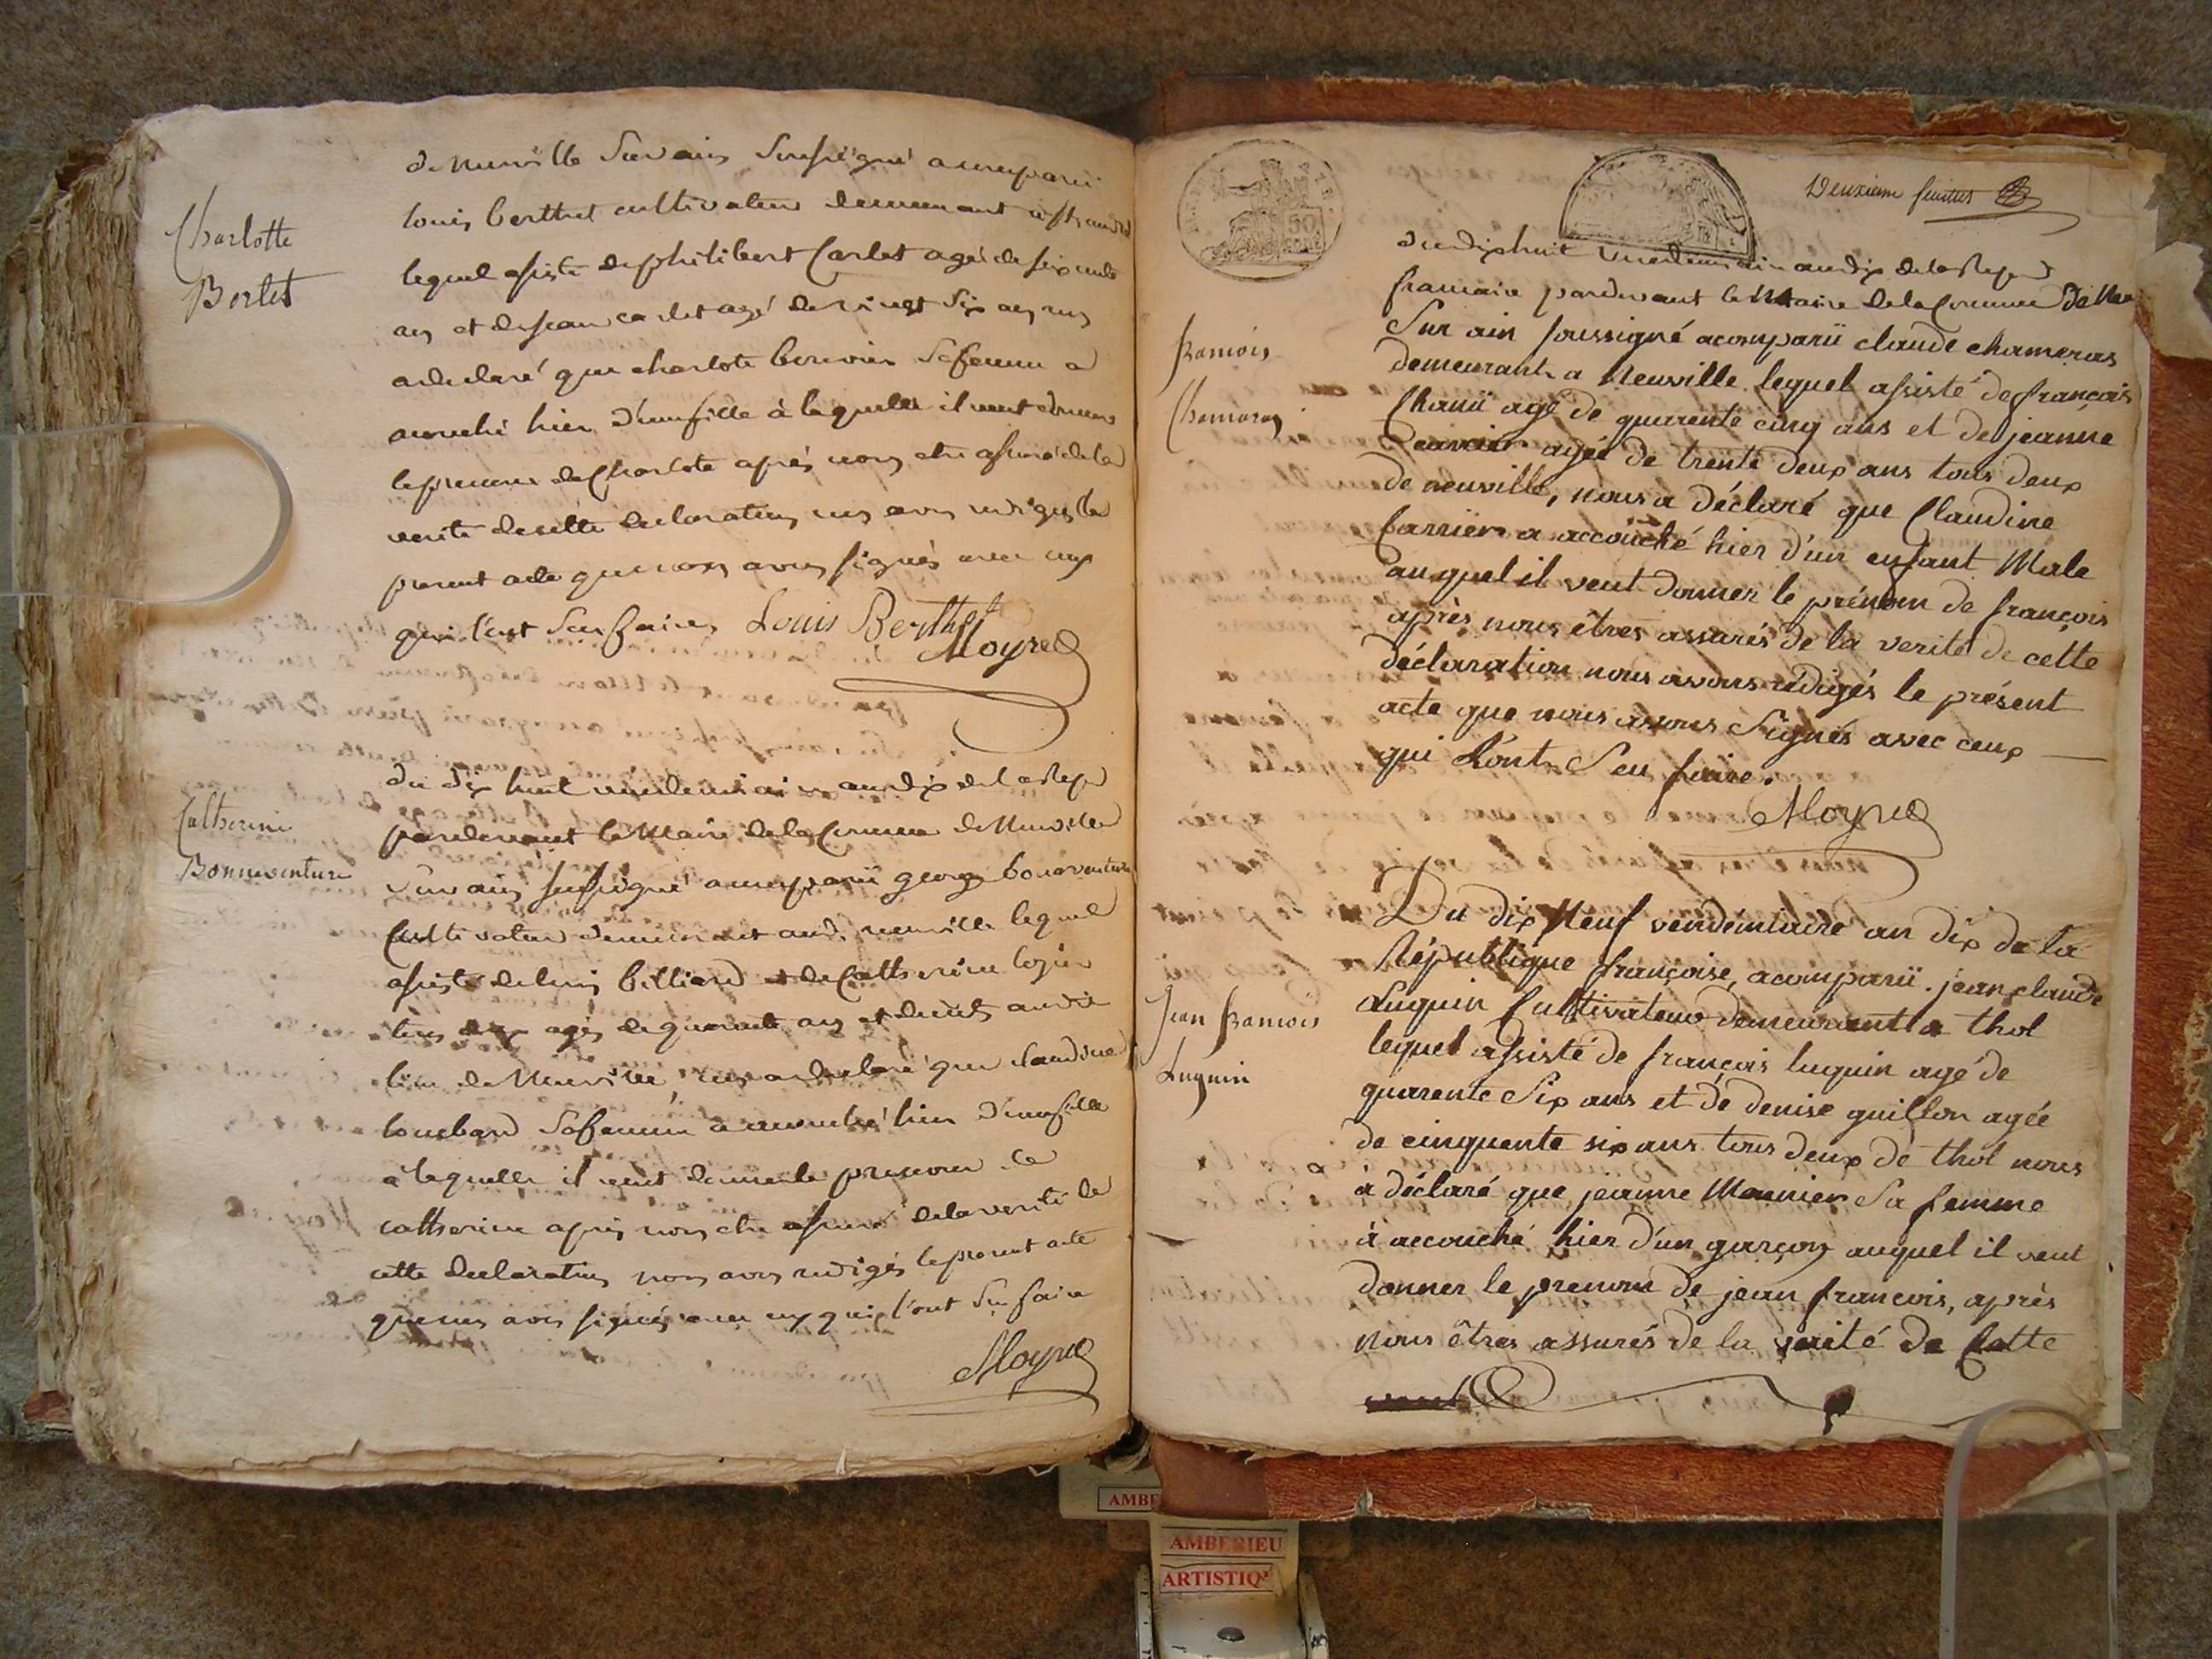 Charlotte
Berlet
de neuville Sur ain Soussigné a comparu
louis berthet cultivateur demeurant a
lequel assisté de philibert Carlet agé de soixante
ans et de jean carlet agé de vingt Six ans nous
a declaré que charlote bouvier Sa femme a
accouché hier d'une fille à laquelle il veut donner
le prenom de Charlote après nous etre assuré de la
verité de cette declaration nous avons redigés le
present acte que nous avons signés avec ceux
qui l'ont Seu faire, Louis Berthet
Moyret
Catherine
Bonnaventure
du dix huit vendemiaire an dix de la Rep
pardevant le Maire de la Commune de Neuville
Sur ain soussigné a comparu george bonaventure
Cultivateur demeurant aud. neuville lequel
assisté de louis billiard et de Catherine
tous deux agés de quarante ans et
lieu de Neuville, nous a declaré que Claudine
lombard Sa femme a accouché hier d'une fille
à laquelle il veut donner le prenom de
catherine après nous etre assuré de la verité de
cette declaration nous avons redigés le present acte
que nous avons signés avec ceux qui l'ont Su faire
Moyret
Deuxieme feuillet
50
francois
Chamaras
du dix huit vendemiaire an dix de la Rep
francaise pardevant le Maire de la Commune de Neu
Sur ain soussigné a comparü claude chameras
demeurant a Neuville lequel assisté de françois
Chanü agé de quarente cinq ans et de jeanne
agée de trente deux ans tous deux
de neuville, nous a déclaré que Claudine
Carrier a accouché hier d'un enfant Male
auquel il veut donner le prénom de françois
après nous êtres assurés de la verité de cette
déclaration nous avons rédigés le présent
acte que nous avons Signés avec ceux
qui L'ont Seu faire.
Moyret
Jean francois
Luguin
Du dix Neuf vendémiaire an dix de la
République françoise, a comparü. jean claude
Luguin Cultivateur demeurant a thol
lequel assisté de françois luguin agé de
quarente Six ans et de denise guillon agée
de cinquente six ans tous deux de thol nous
à déclaré que jeanne Monnier Sa femme
à accouché hier d'un garçon auquel il veut
donner le prenom de jean francois, après
nous êtres assurés de la vérité de Cette
AMBERIEU
ARTISTIQ